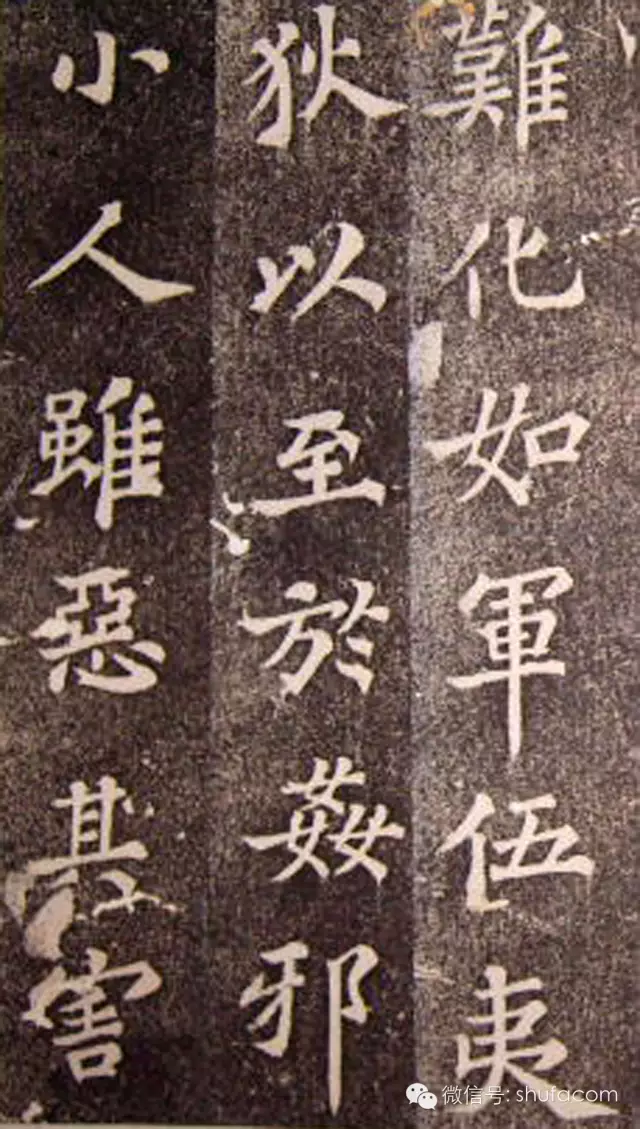 難化如軍伍夷
狄以至於姦邪
小人雖惡甚害
微信号: shufacom